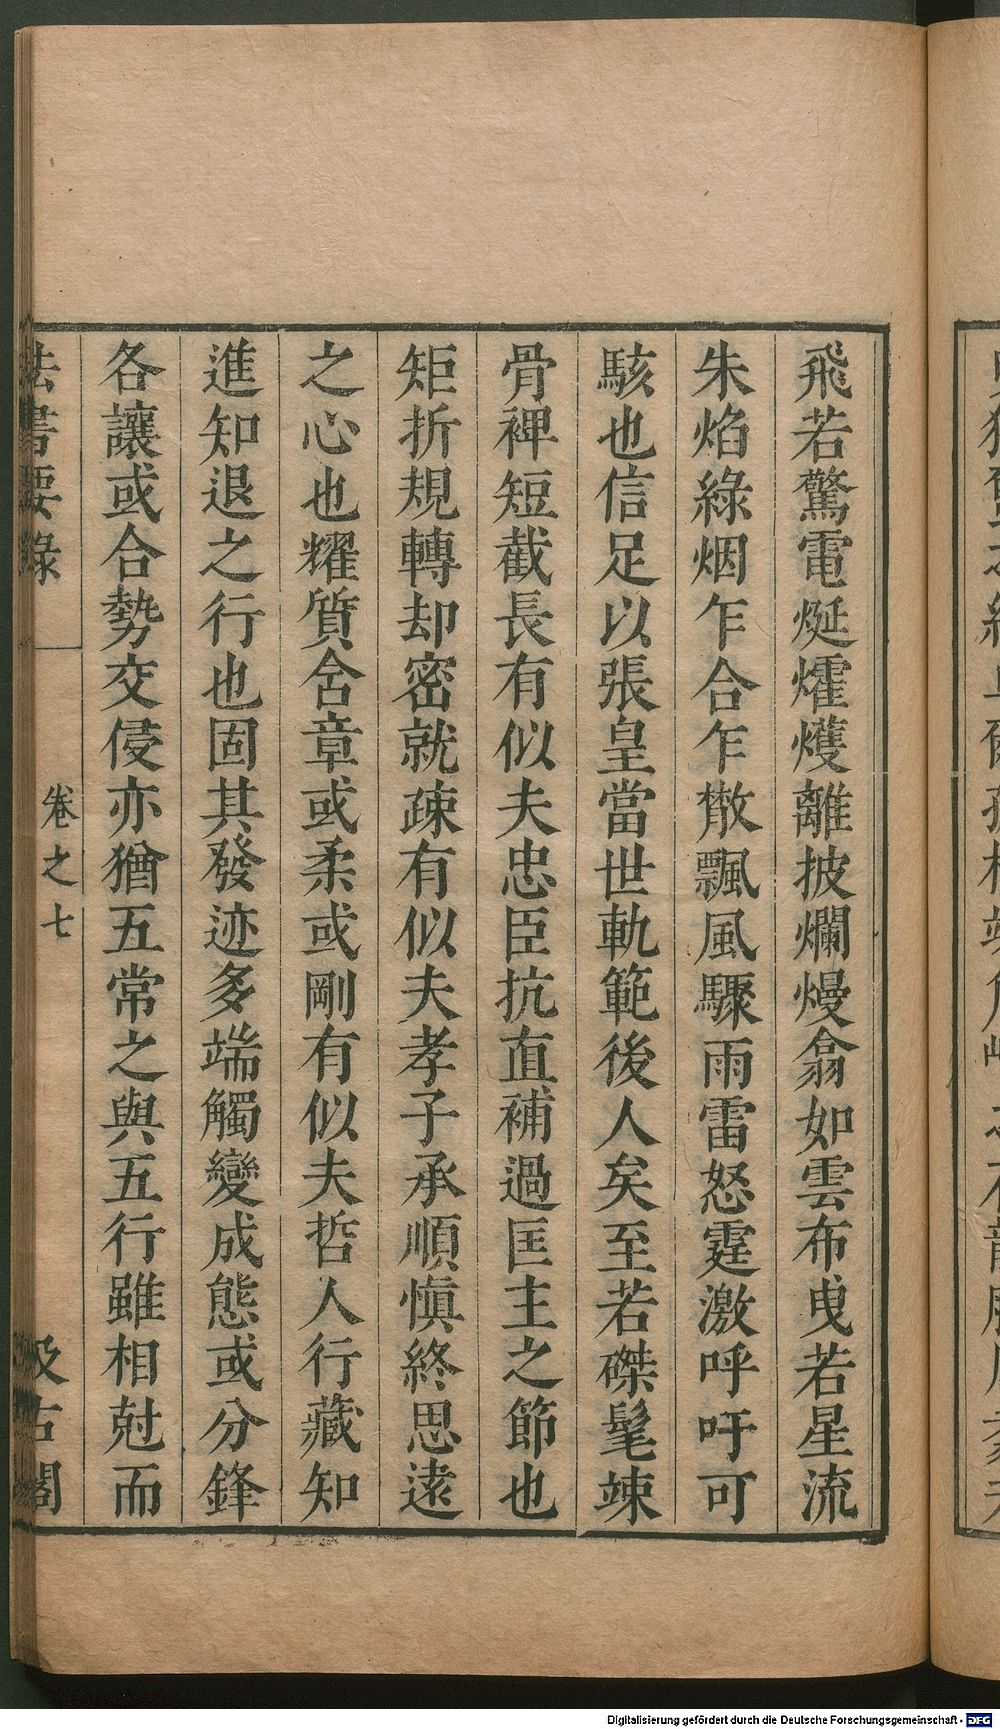 飛若驚電烻爠㸌離披爛熳翕如雲布曳若星流
朱焰綠烟乍合乍散飄風驟雨雷怒霆激呼吁可
駭也信足以張皇當世軌範後人矣至若磔髦竦
骨裨短截長有似夫忠臣抗直補過匡主之節也
矩折規轉却密就疎有似夫孝子承順慎終思遠
之心也耀質含章或柔或剛有似夫哲人行藏知
進知退之行也固其發迹多端觸變成態或分鋒
各讓或合勢交侵亦猶五常之與五行雖相尅而
法書要錄
卷之七
汲古閣
Digitalisierung gefördert durch die Deutsche Forschungsgemeinschaft - DFG